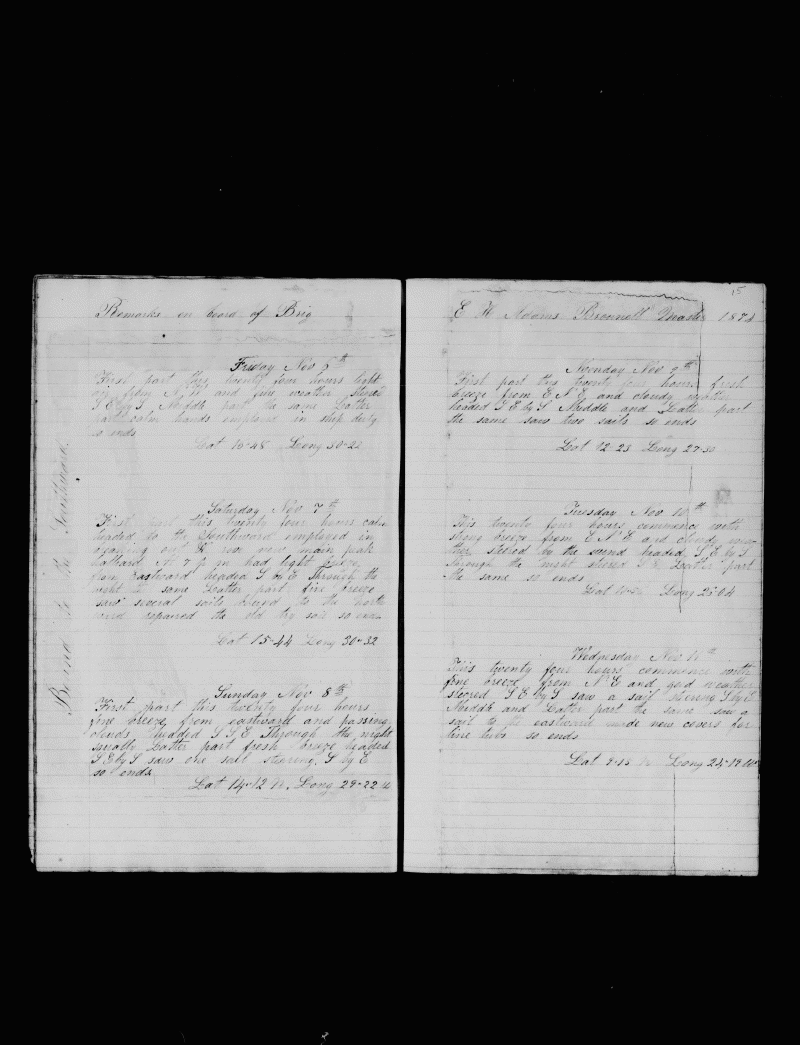 Remarks on board of Brig
Friday Nov 6th
First part this twenty four hours light
from N, W and fine weather steered
S E by S Middle part the same Latter
part calm hands employed in ship duty
so ends
Lat 16-48 Long 30-22
Saturday Nov 7th
First part this twenty four hours calm
headed to the Southward employed in
out new main peak
halliard At 7 P m had light breeze
from Eastward headed S by E Through the
night same Latter part fine breeze
saw several sails bound to the North
ward repaired the old sail so ends
Lat 15-44 Long 30-32
Sunday Nov 8th
First part this twenty four hours
fine breeze from eastward and passing
clouds headed S S E Through the night
squally Latter part fresh breeze headed
S E by S saw one sail steering S by E
so ends
Lat 14-12 N, Long 29-22 W
Bound to the Southward.
15
E H Adams Master 1874
Monday Nov 9th
First part this twenty four hours fresh
breeze from E N E and cloudy weather
headed S E by S Middle and Latter part
the same saw two sails so ends
Lat 12-23 Long 27-30
Tuesday Nov 10th
This twenty four hours commence with
strong breeze from E N E and cloudy wea-
ther steered by the wind headed S E by S
Through the night steered S E Latter part
the same so ends
Lat Long 26-04
Wednesday Nov 11th
This twenty four hours commence with
fine breeze from N E and good weather
steered S E by S saw a sail steering S by E
Middle and Latter part the same saw a
sail to the eastward made new covers for
line tubs so ends
Lat 9-15 N Long 24-19 W